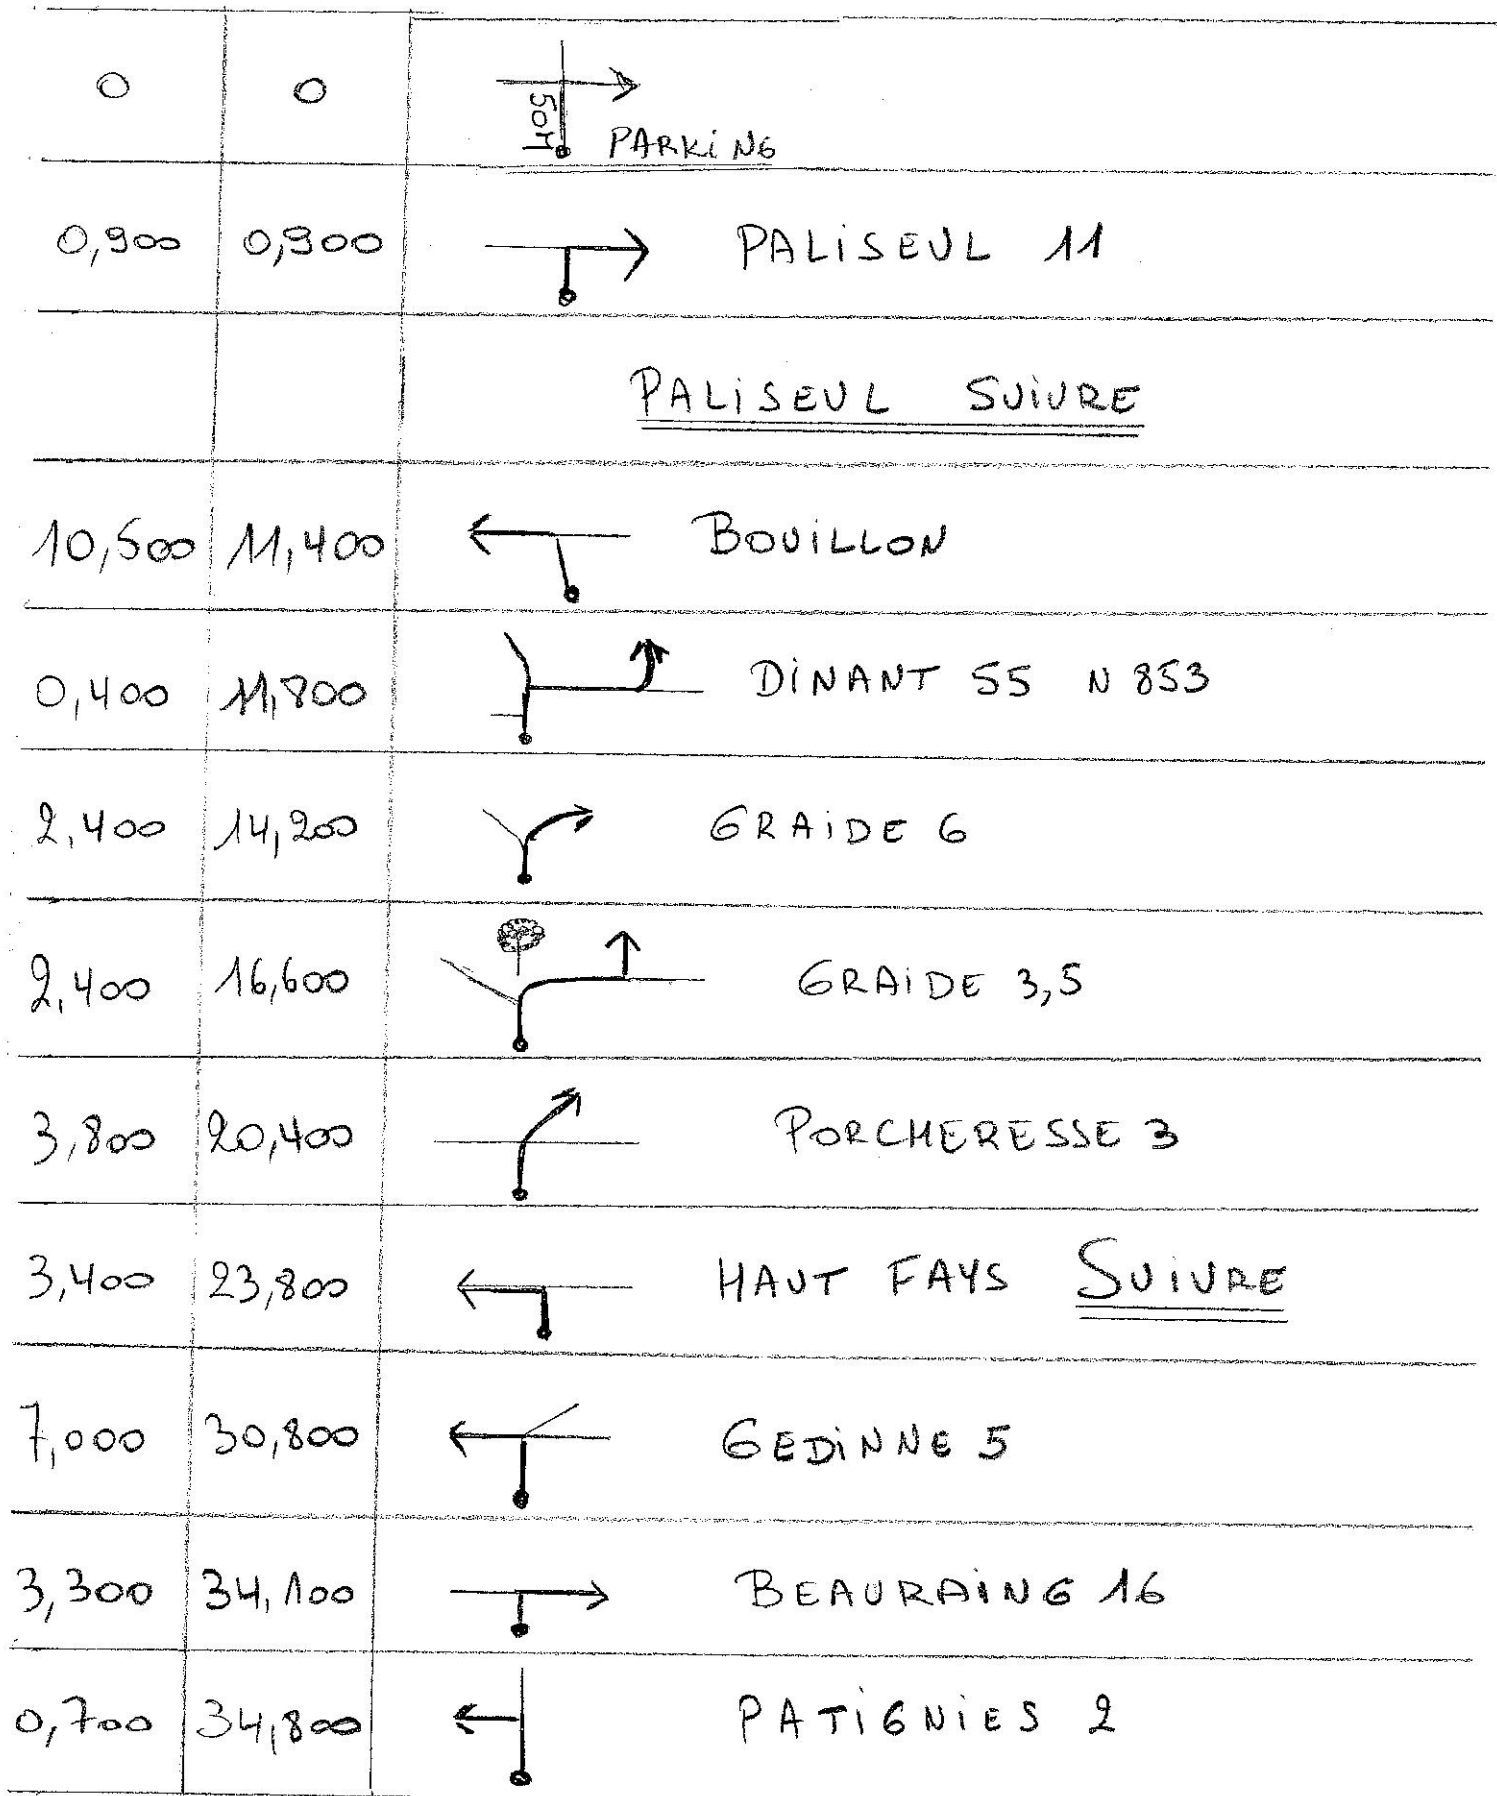 0 0 50M PARKING
0,900 0,900 PALISEUL 11
PALISEUL SUIVRE
10,500 11,400 BOUILLON
0,400 11,800 DINANT 55 N 853
2,400 14,200 GRAIDE 6
2,400 16,600 GRAIDE 3,5
3,800 20,400 PORCHERESSE 3
3,400 23,800 HAUT FAYS SUIVRE
7,000 30,800 GEDINNE 5
3,300 34,100 BEAURAING 16
0,700 34,800 PATIGNIES 2